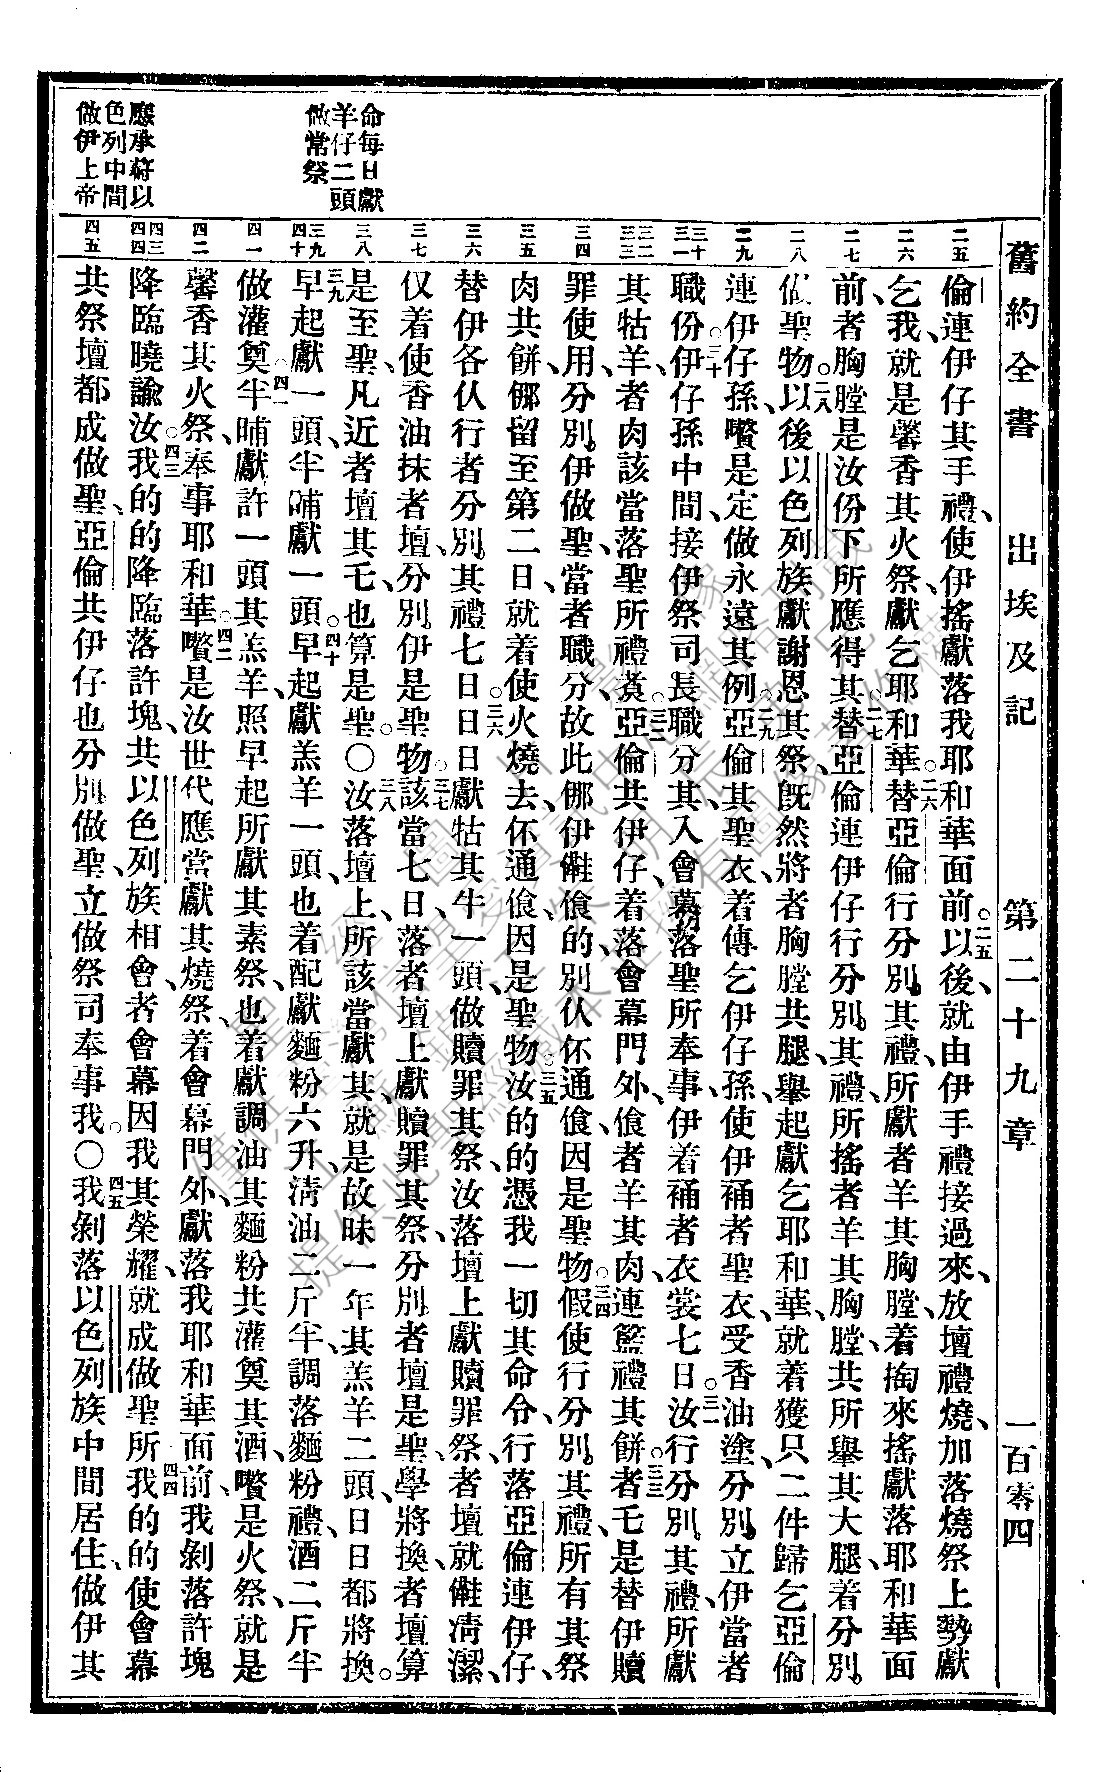 舊約全書 出埃及記 第二十九章 一百零四
命每日獻
羊仔二頭
做常祭
應承蒞以
色列中間
做伊上帝
二五
二六
二七
二八
二九
三十 三一
三二 三三
三四
三五
三六
三七
三八
三九 四十
四一
四二
四三 四四
四五
倫連伊仔其手禮、使伊搖獻落我耶和華面前。二五以後、就由伊手禮接過來、放壇禮燒、加落燒祭上勢獻
乞我、就是馨香其火祭、獻乞耶和華。二六替亞倫行分別其禮、所獻者羊其胸膛、着掏來搖獻落耶和華面
前、者胸膛是汝份下所應得其。二七替亞倫連伊仔行分別其禮、所搖者羊其胸膛、共所舉其大腿、着分別
做聖物。二八以後以色列族獻謝恩其祭、旣然將者胸膛共腿、舉起獻乞耶和華、就着獲只二件歸乞亞倫
連伊仔孫、嚽是定做永遠其例。二九亞倫其聖衣、着傳乞伊仔孫、使伊䘄者聖衣、受香油塗、分別立伊當者
職份。三十伊仔孫中間、接伊祭司長職分其、入會幕落聖所奉事、伊着䘄者衣裳七日。三一汝行分別其禮、所獻
其牯羊、者肉該當落聖所禮煑。三二亞倫共伊仔、着落會幕門外、飧者羊其肉、連籃禮其餅。三三者乇是替伊贖
罪使用、分別伊做聖、當者職分、故此㑚伊㒰飧的、別仈伓通飧、因是聖物。三四假使行分別其禮、所有其祭
肉共餅、㑚留至第二日、就着使火燒去、伓通飧、因是聖物。三五汝的的憑我一切其命令、行落亞倫連伊仔、
替伊各仈行者分別其禮七日。三六日日獻牯其牛一頭、做贖罪其祭、汝落壇上獻贖罪祭、者壇就㒰凊潔、
仅着使香油抹者壇、分別伊是聖物。三七該當七日、落者壇上獻贖罪其祭、分別者壇是聖、學將換者壇算
是至聖、凡近者壇其乇、也算是聖。〇三八汝落壇上、所該當獻其、就是故昧一年其羔羊二頭、日日都將換。
三九早起獻一頭、半晡獻一頭。四十早起獻羔羊一頭、也着配獻麵粉六升、淸油二斤半、調落麵粉禮、酒二斤半
做灌奠。四一半晡獻許一頭其羔羊、照早起所獻其素祭、也着獻調油其麵粉、共灌奠其酒、嚽是火祭、就是
馨香其火祭、奉事耶和華。四二嚽是汝世代應當獻其燒祭、着會幕門外、獻落我耶和華面前、我剝落許塊
降臨曉諭汝。四三我的的降臨落許塊、共以色列族相會、者會幕因我其榮耀、就成做聖所。四四我的的使會幕
共祭壇都成做聖、亞倫共伊仔也分別做聖、立做祭司奉事我。〇四五我剝落以色列族中間居住、做伊其